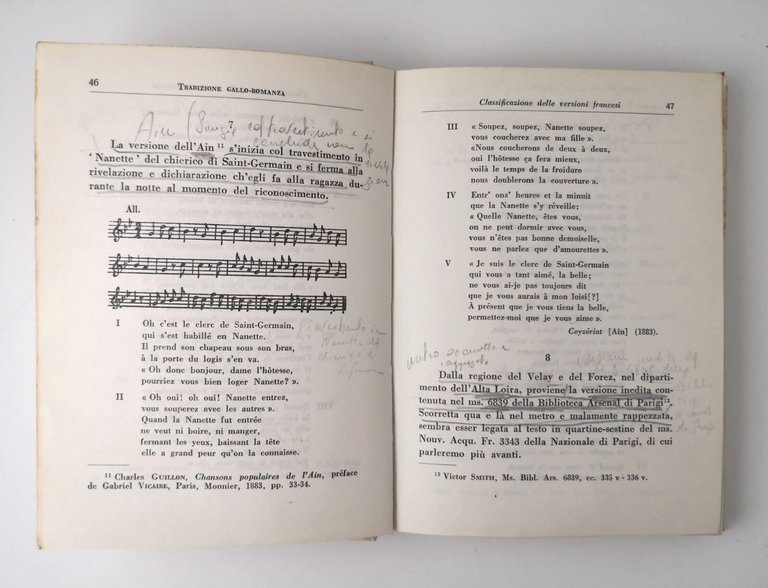 46
TRADIZIONE GALLO-ROMANZA
7
Ain
La versione dell'Ain 11 s'inizia col travestimento in
' Nanette ' del chierico di Saint-Germain e si ferma alla
rivelazione e dichiarazione ch'egli fa alla ragazza du-
rante la notte al momento del riconoscimento.
All.
I Oh c'est le clerc de Saint-Germain,
qui s'est habillé en Nanette.
Il prend son chapeau sous son bras,
à la porte du logis s'en va.
« Oh donc bonjour, dame l'hôtesse,
pourriez vous bien loger Nanette? ».
II « Oh oui! oh oui! Nanette entrez,
vous souperez avec les autres ».
Quand la Nanette fut entrée
ne veut ni boire, ni manger,
fermant les yeux, baissant la tête
elle a grand peur qu'on la connaisse.
11 Charles GUILLON, Chansons populaires de l'Ain, préface
de Gabriel VICAIRE, Paris, Monnier, 1883, pp. 33-34.
Classificazione delle versioni francesi
47
III « Soupez, soupez, Nanette soupez,
vous coucherez avec ma fille ».
«Nous coucherons de deux à deux,
oui l'hôtesse ça fera mieux,
voilà le temps de la froidure
nous doublerons la couverture ».
IV Entr' onz' heures et la minuit
que la Nanette s'y réveille:
« Quelle Nanette, êtes vous,
on ne peut dormir avec vous,
vous n'êtes pas bonne demoiselle,
vous ne parlez que d'amourettes ».
V « Je suis le clerc de Saint-Germain
qui vous a tant aimé, la belle;
ne vous ai-je pas toujours dit
que je vous aurais à mon loisi[?]
À présent que je vous tiens, la belle,
permettez-moi que je vous aime ».
Ceyzériat [Ain] (1883).
8
Dalla regione del Velay e del Forez, nel diparti-
mento dell'Alta Loira, proviene la versione inedita con-
tenuta nel ms. 6839 della Biblioteca Arsenal di Parigi12.
Scorretta qua e là nel metro e malamente rappezzata,
sembra esser legata al testo in quartine-sestine del ms.
Nouv. Acqu. Fr. 3343 della Nazionale di Parigi, di cui
parleremo più avanti.
12 Victor SMITH, Ms. Bibl. Ars. 6839, cc. 335 v - 336 v.